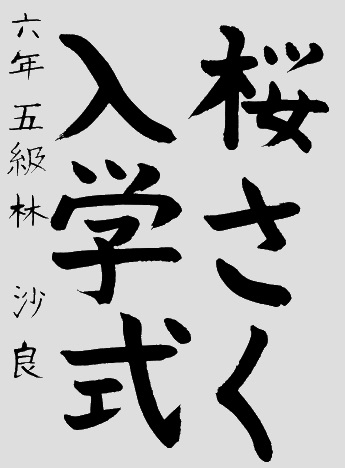 桜さく
入学式
六年 五級 林 沙良